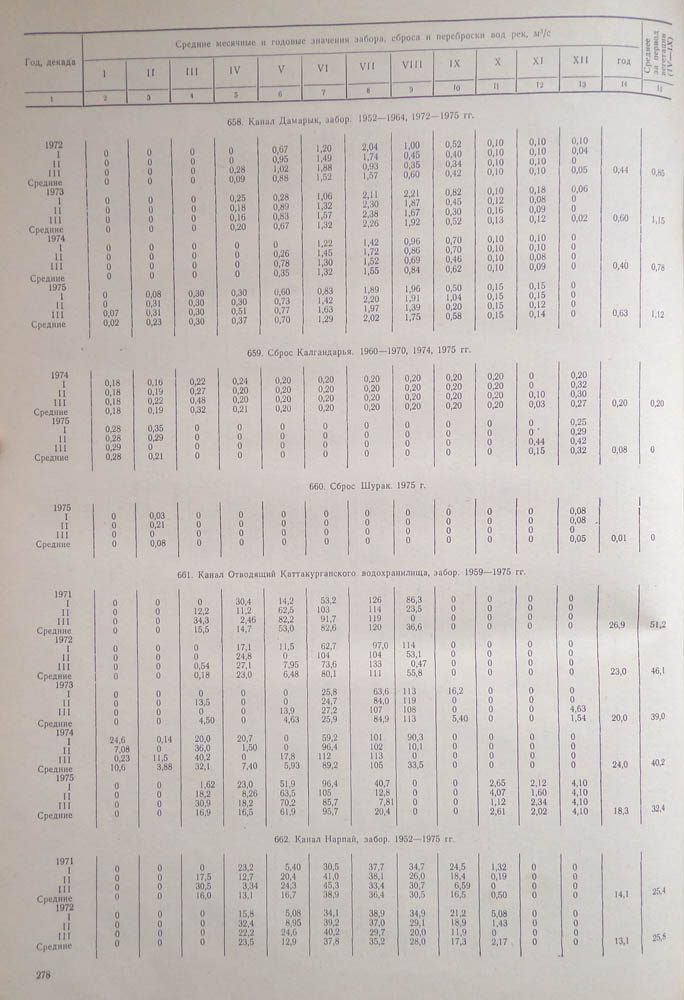 Год, декада
Средние месячные и годовые значения забора, сброса и переброски вод рек, м³/с
Среднее за период вегетации (IV—IX)
I II III IV V VI VII VIII IX X XI XII год
1 2 3 4 5 6 7 8 9 10 11 12 13 14 15
658. Канал Дамарык, забор. 1952—1964, 1972—1975 гг.
1972
I 0 0 0 0 0,67 1,20 2,04 1,00 0,52 0,10 0,10 0,10
II 0 0 0 0 0,95 1,49 1,74 0,45 0,40 0,10 0,10 0,04
III 0 0 0 0,28 1,02 1,88 0,93 0,35 0,34 0,10 0,10 0
Средние 0 0 0 0,09 0,88 1,52 1,57 0,60 0,42 0,10 0,10 0,05 0,44 0,85
1973
I 0 0 0 0,25 0,28 1,06 2,11 2,21 0,82 0,10 0,18 0,06
II 0 0 0 0,18 0,89 1,32 2,30 1,87 0,45 0,12 0,08 0
III 0 0 0 0,16 0,83 1,57 2,38 1,67 0,30 0,16 0,09 0
Средние 0 0 0 0,20 0,67 1,32 2,26 1,92 0,52 0,13 0,12 0,02 0,60 1,15
1974
I 0 0 0 0 0 1,22 1,42 0,96 0,70 0,10 0,10 0
II 0 0 0 0 0,26 1,45 1,72 0,86 0,70 0,10 0,10 0
III 0 0 0 0 0,78 1,30 1,52 0,69 0,46 0,10 0,08 0
Средние 0 0 0 0 0,35 1,32 1,55 0,84 0,62 0,10 0,09 0 0,40 0,78
1975
I 0 0,08 0,30 0,30 0,60 0,83 1,89 1,96 0,50 0,15 0,15 0
II 0 0,31 0,30 0,30 0,73 1,42 2,20 1,91 1,04 0,15 0,15 0
III 0,07 0,31 0,30 0,51 0,77 1,63 1,97 1,39 0,20 0,15 0,12 0
Средние 0,02 0,23 0,30 0,37 0,70 1,29 2,02 1,75 0,58 0,15 0,14 0 0,63 1,12
659. Сброс Калгандарья. 1960—1970, 1974, 1975 гг.
1974
I 0,18 0,16 0,22 0,24 0,20 0,20 0,20 0,20 0,20 0,20 0 0,20
II 0,18 0,19 0,27 0,20 0,20 0,20 0,20 0,20 0,20 0,20 0 0,32
III 0,18 0,22 0,48 0,20 0,20 0,20 0,20 0,20 0,20 0,20 0,10 0,30
Средние 0,18 0,19 0,32 0,21 0,20 0,20 0,20 0,20 0,20 0,20 0,03 0,27 0,20 0,20
1975
I 0,28 0,35 0 0 0 0 0 0 0 0 0 0,25
II 0,28 0,29 0 0 0 0 0 0 0 0 0 0,29
III 0,29 0 0 0 0 0 0 0 0 0 0,44 0,42
Средние 0,28 0,21 0 0 0 0 0 0 0 0 0,15 0,32 0,08 0
660. Сброс Шурак. 1975 г.
1975
I 0 0,03 0 0 0 0 0 0 0 0 0 0,08
II 0 0,21 0 0 0 0 0 0 0 0 0 0,08
III 0 0 0 0 0 0 0 0 0 0 0 0
Средние 0 0,08 0 0 0 0 0 0 0 0 0 0,05 0,01 0
661. Канал Отводящий Каттакурганского водохранилища, забор. 1959—1975 гг.
1971
I 0 0 0 30,4 14,2 53,2 126 86,3 0 0 0 0
II 0 0 12,2 11,2 62,5 103 114 23,5 0 0 0 0
III 0 0 34,3 2,46 82,2 91,7 119 0 0 0 0 0
Средние 0 0 15,5 14,7 53,0 82,6 120 36,6 0 0 0 0 26,9 51,2
1972
I 0 0 0 17,1 11,5 62,7 97,0 114 0 0 0 0
II 0 0 0 24,8 0 104 104 53,1 0 0 0 0
III 0 0 0,54 27,1 7,95 73,6 133 0,47 0 0 0 0
Средние 0 0 0,18 23,0 6,48 80,1 111 55,8 0 0 0 0 23,0 46,1
1973
I 0 0 0 0 0 25,8 63,6 113 16,2 0 0 0
II 0 0 13,5 0 0 24,7 84,0 119 0 0 0 0
III 0 0 0 0 13,9 27,2 107 108 0 0 0 4,63
Средние 0 0 4,50 0 4,63 25,9 84,9 113 5,40 0 0 1,54 20,0 39,0
1974
I 24,6 0,14 20,0 20,7 0 59,2 101 90,3 0 0 0 0
II 7,08 0 36,0 1,50 0 96,4 102 10,1 0 0 0 0
III 0,23 11,5 40,2 0 17,8 112 113 0 0 0 0 0
Средние 10,6 3,88 32,1 7,40 5,93 89,2 105 33,5 0 0 0 0 24,0 40,2
1975
I 0 0 1,62 23,0 51,9 96,4 40,7 0 0 2,65 2,12 4,10
II 0 0 18,2 8,26 63,5 105 12,8 0 0 4,07 1,60 4,10
III 0 0 30,9 18,2 70,2 85,7 7,81 0 0 1,12 2,34 4,10
Средние 0 0 16,9 16,5 61,9 95,7 20,4 0 0 2,61 2,02 4,10 18,3 32,4
662. Канал Нарпай, забор. 1952—1975 гг.
1971
I 0 0 0 23,2 5,40 30,5 37,7 34,7 24,5 1,32 0 0
II 0 0 17,5 12,7 20,4 41,0 38,1 26,0 18,4 0,19 0 0
III 0 0 30,5 3,34 24,3 45,3 33,4 30,7 6,59 0 0 0
Средние 0 0 16,0 13,1 16,7 38,9 36,4 30,5 16,5 0,50 0 0 14,1 25,4
1972
I 0 0 0 15,8 5,08 34,1 38,9 34,9 21,2 5,08 0 0
II 0 0 0 32,4 8,95 39,2 37,0 29,1 18,9 1,43 0 0
III 0 0 0 22,2 24,6 40,2 29,7 20,0 11,9 0 0 0
Средние 0 0 0 23,5 12,9 37,8 35,2 28,0 17,3 2,17 0 0 13,1 25,8
278